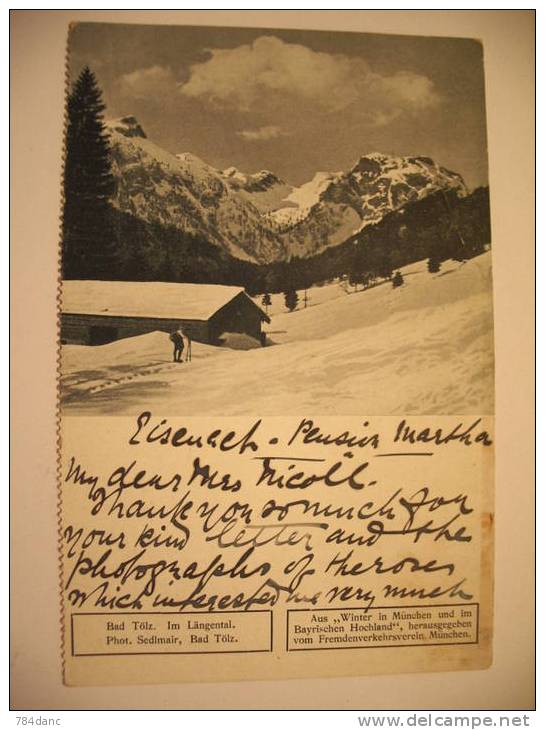 Eisenach - Pension Martha
My dear Mrs Nicoll.
Thank you so much for
your kind letter and the
photographs of the roses
which interested me very much
Bad Tölz. Im Längental.
Phot. Sedlmair, Bad Tölz.
Aus „Winter in München und im
Bayrischen Hochland", herausgegeben
vom Fremdenverkehrsverein München.
784danc
delcampe.net